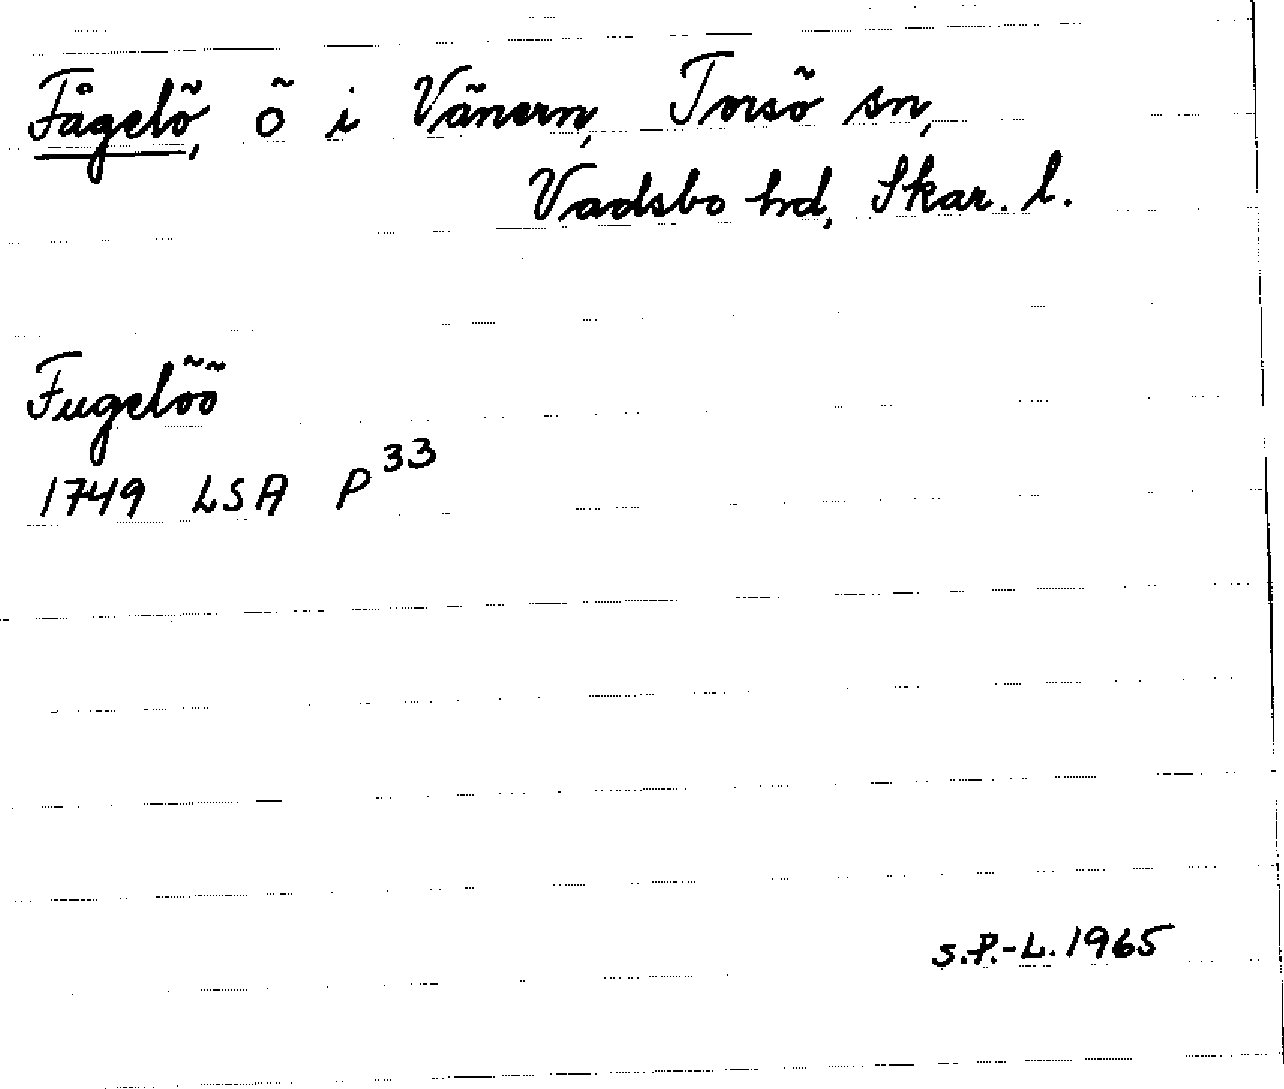 Fågelö, ö i Vänern, Torsö sn,
Vadsbo hd, Skar. l.
Fugelöö
1749 LSA P 33
S.P.-L. 1965